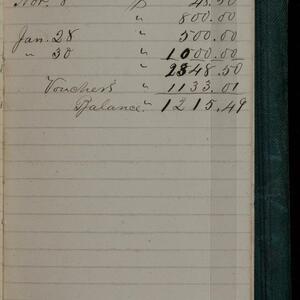 Nov. 8 $ 48.50
" 800.00
Jan. 28 " 500.00
" 30 " 1000.00
2348.50
Vouchers " 1133.01
Balance " 1215.49